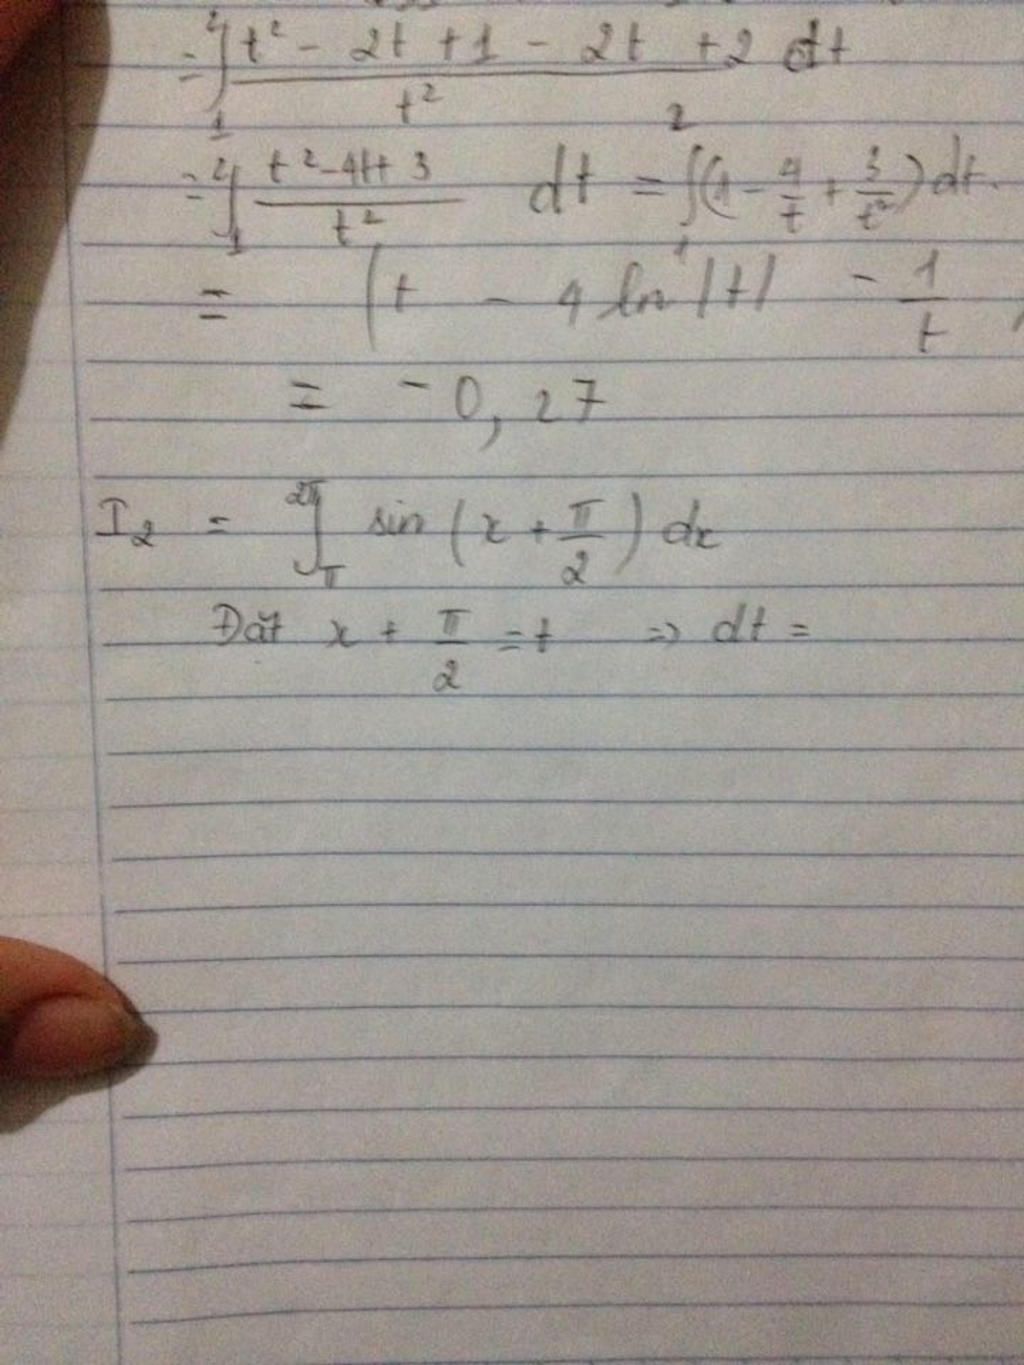 = ∫₁² (t² - 2t + 1 - 2t + 2)/t² dt
= ∫₁² (t² - 4t + 3)/t² dt = ∫₁² (1 - 4/t + 3/t²) dt.
= (t - 4 ln |t| - 1/t
= - 0,27
I₂ = ∫_π^2π sin (x + π/2) dx
Đặt x + π/2 = t => dt =